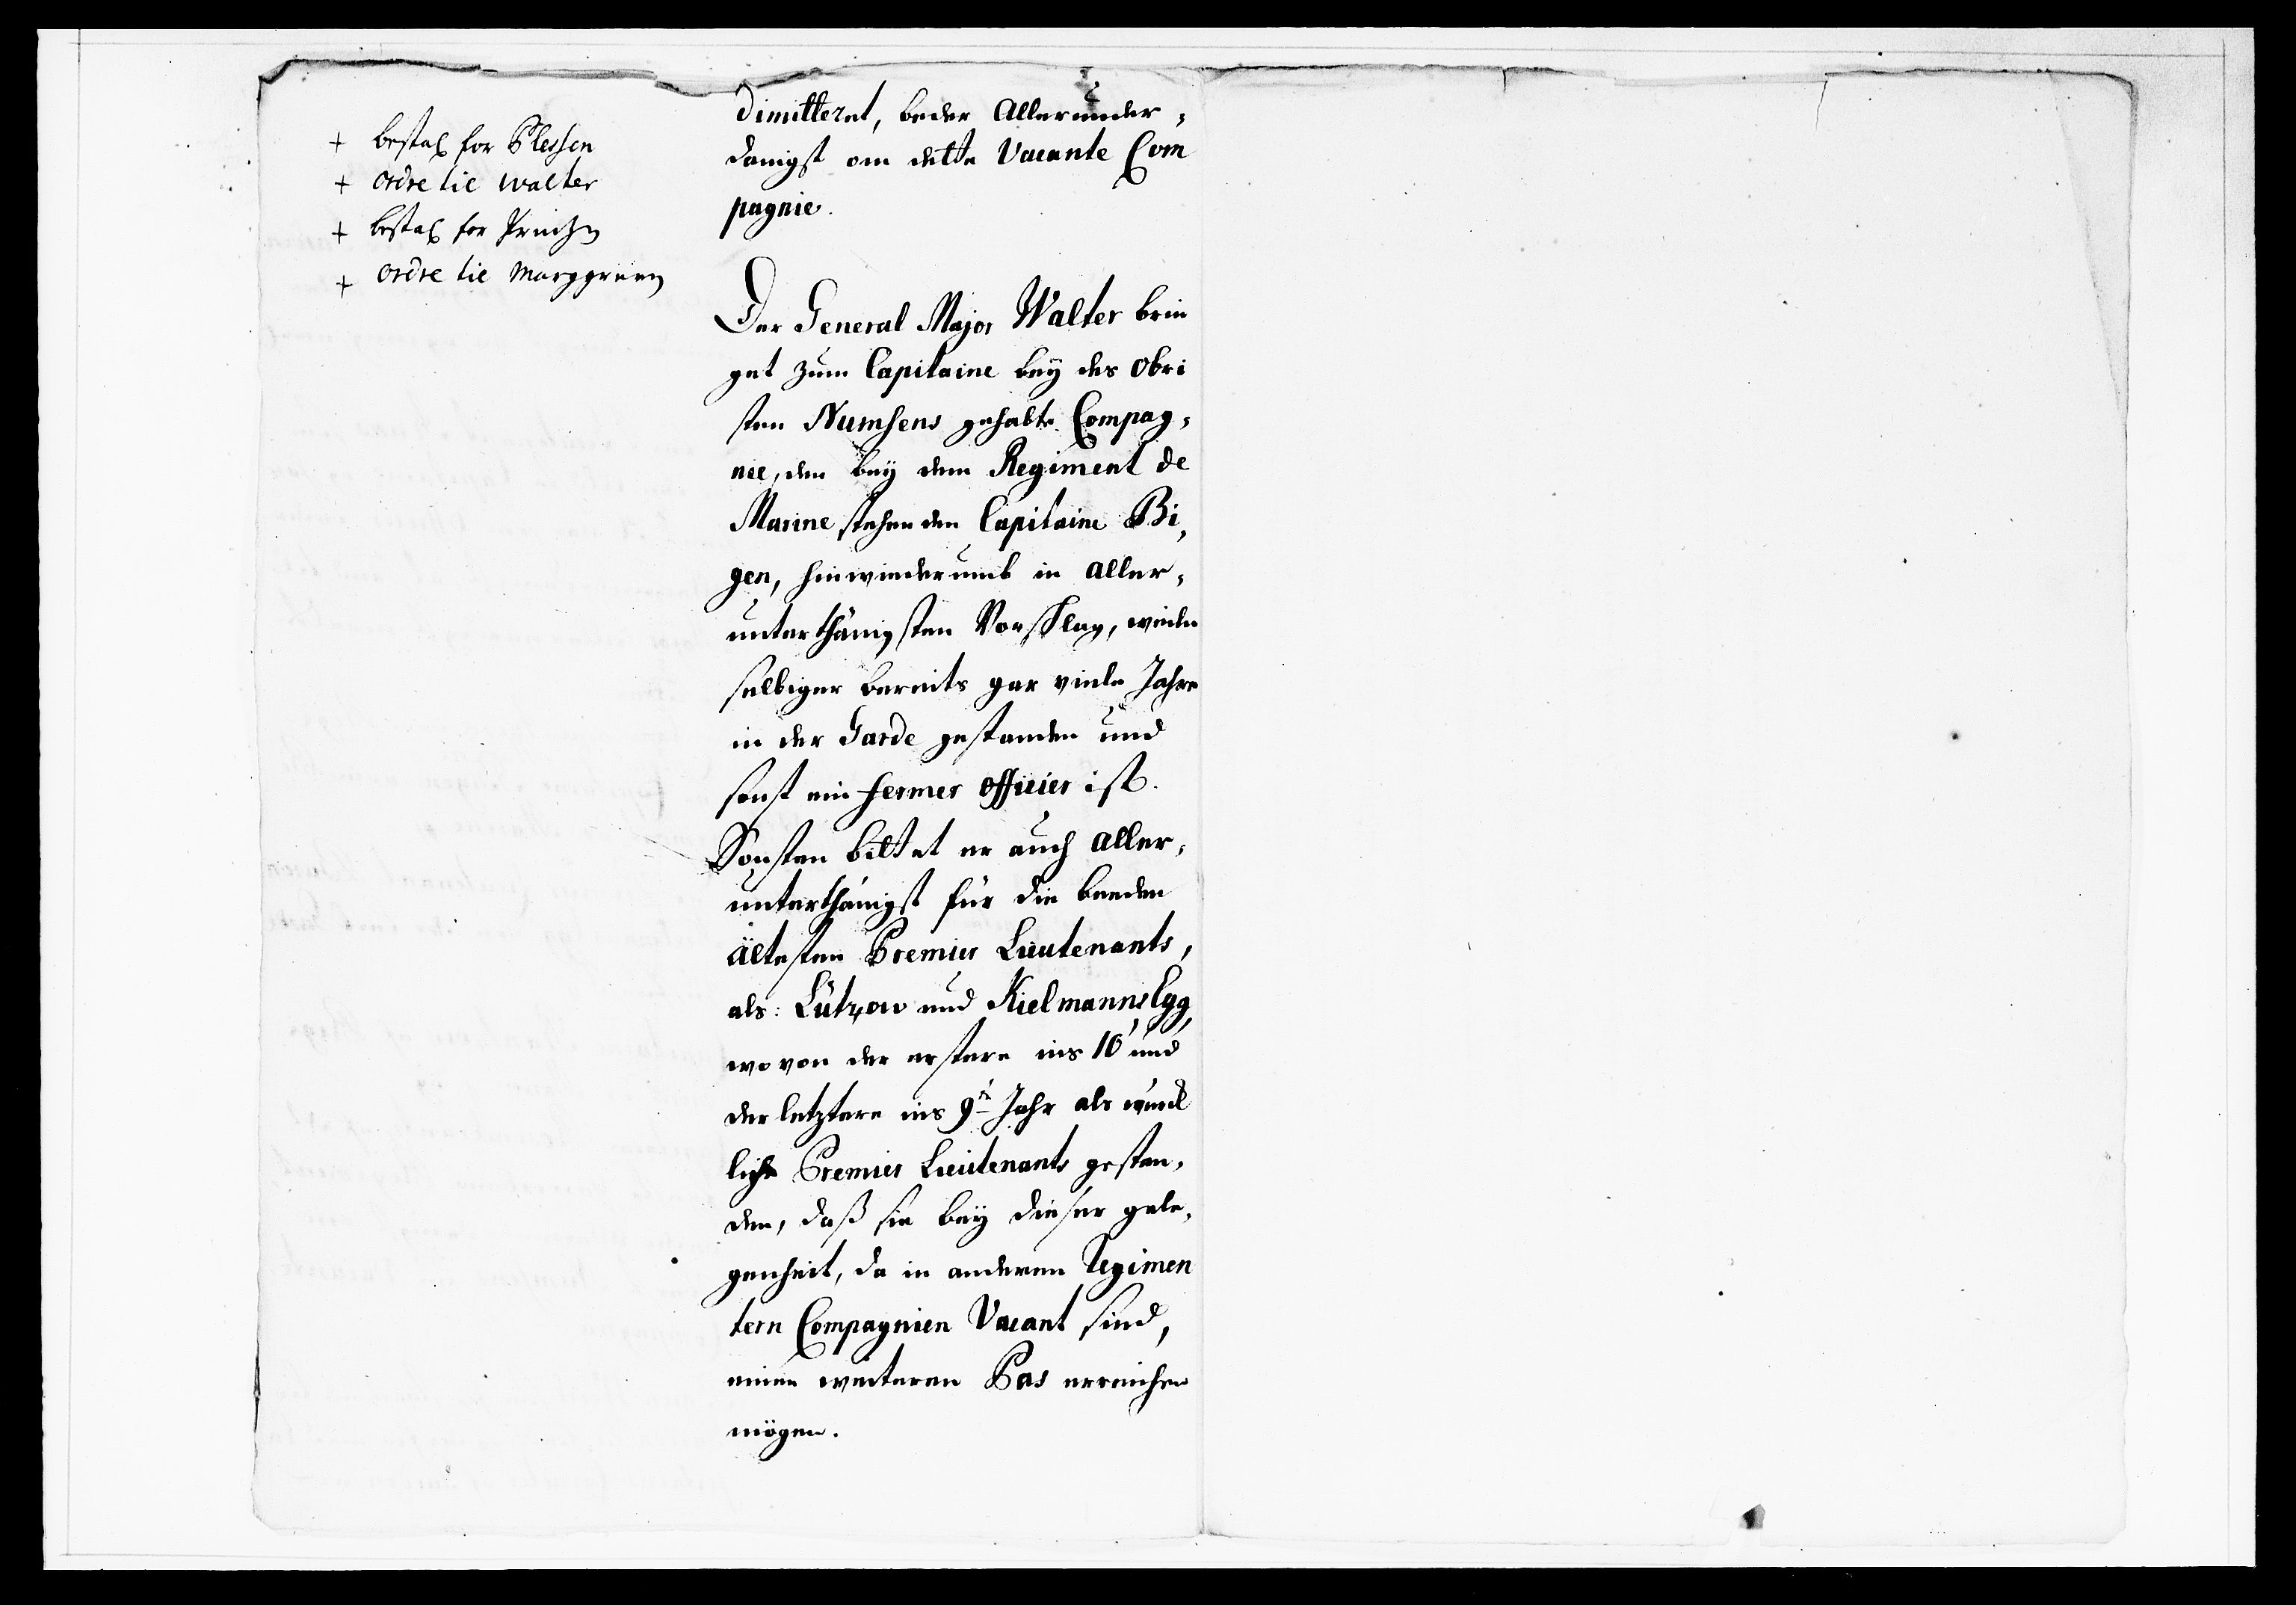 + bestal for Plessen
+ ordre til Walter
+ bestal for
+ ordre til
dimitteret, beder Allerunder¸
danigst om dette Vacante Com
pagnie.
Der General Major Walter brin
get zum Capitaine bey des Obri
sten Numsens gehabte Compag¸
nie, den bey dem Regiment de
Marine stehenden Capitaine Bi¸
gen, hinwiederumb in aller¸
unterthänigsten Vorschlag, weile
selbiger bereits gar viele Jahre
in der Garde gestanden und
sonst ein fermer Officier ist.
Sonsten bittet er auch aller¸
unterthänigst für die beeden
ältesten Premier Lieutenants,
als: Lützow und Kielmannsegg,
wovon der erstere ins 10 und
der letztere ins 9te Jahr als würck
liche Premier Lieutenants gestan¸
den, daß sie bey dieser gele¸
genheit, da in anderen Regimen
tern Compagnien Vacant sind,
einen weiteren Pas erreichen
mögen.